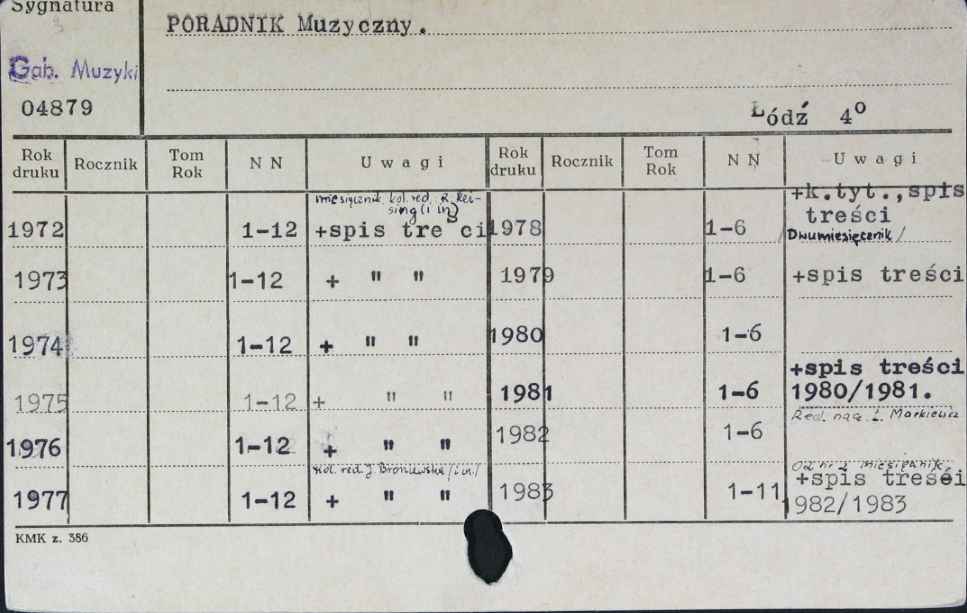 Sygnatura
PORADNIK Muzyczny.
Gab. Muzyki
04879
Łódź 4°
Rok druku Rocznik Tom Rok N N Uwagi Rok druku Rocznik Tom Rok N N Uwagi
miesięcznik kol. red. R.
sing (i in)
+k.tyt.,spis
treści
1972 1-12 +spis tre ci 1978 1-6 /Dwumiesięcznik/
1973 1-12 + " " 1979 1-6 +spis treści
1974 1-12 + " " 1980 1-6
+spis treści
1975 1-12 + " " 1981 1-6 1980/1981.
Red. nacz. Markiewicz
1976 1-12 + " " 1982 1-6
kol. red. J. Broniewska (i in.)
Od nr 2 miesięcznik
+spis treści
1977 1-12 + " " 1983 1-11 1982/1983
KMK z. 386